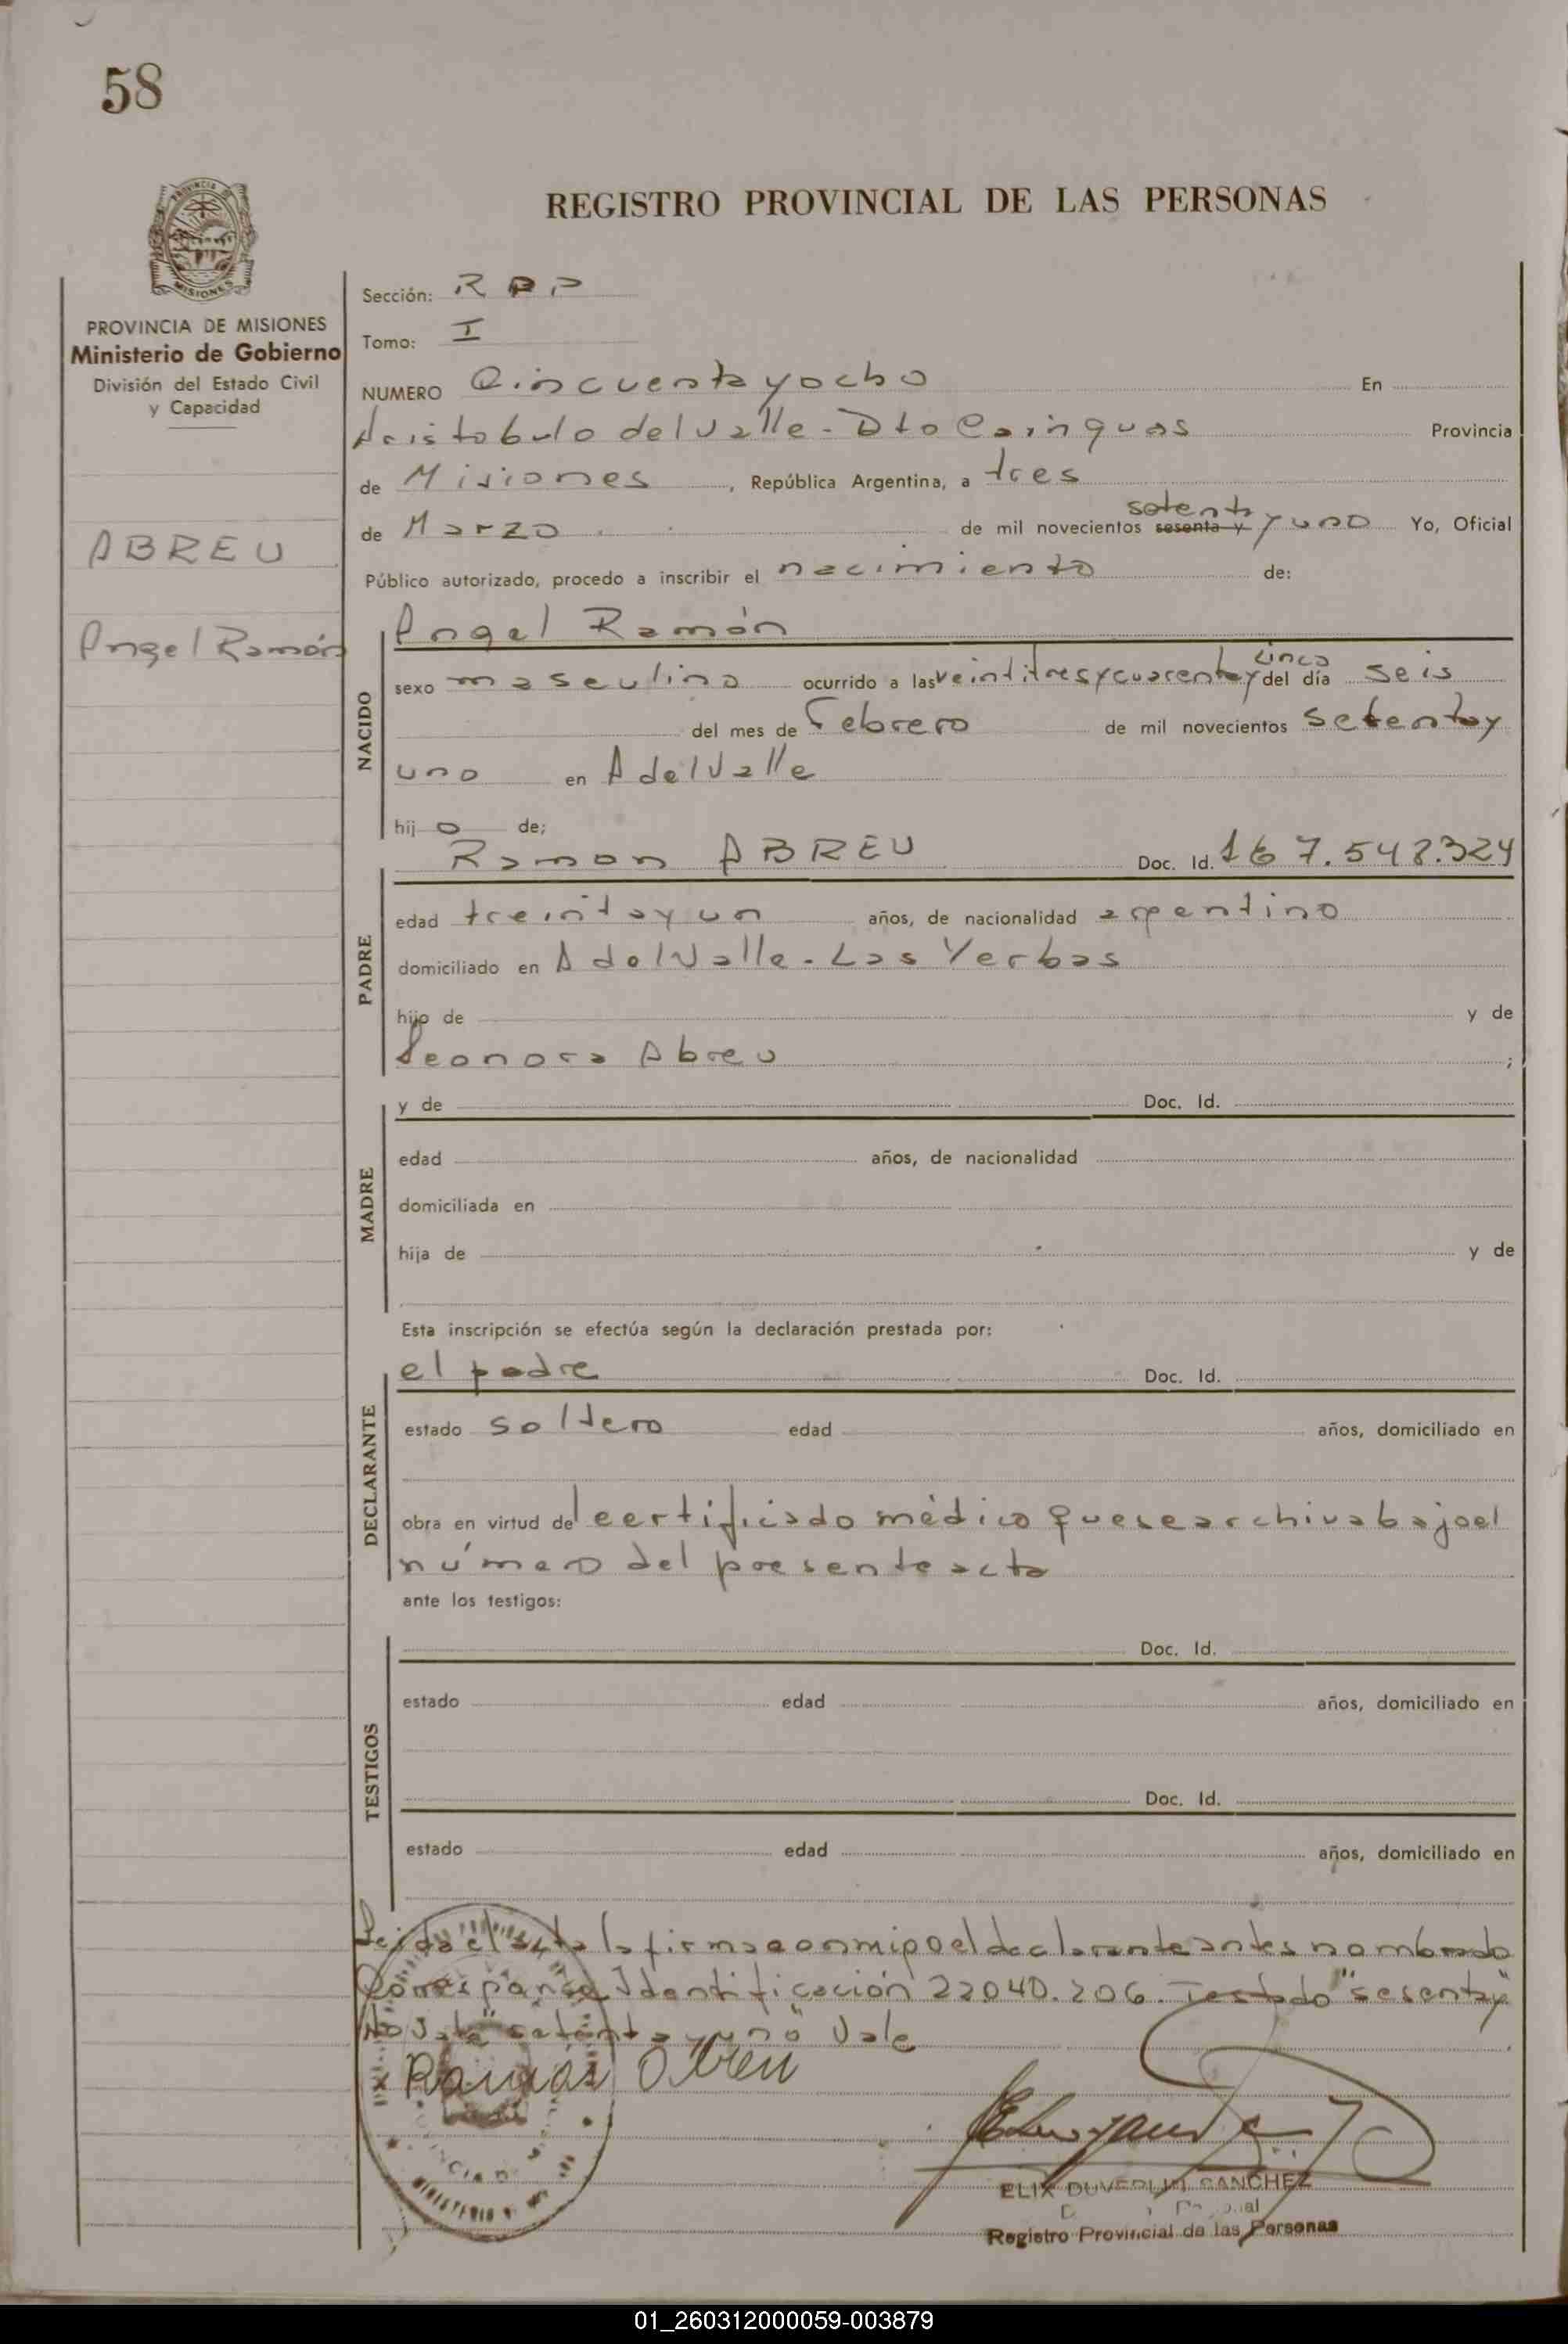 58
REGISTRO PROVINCIAL DE LAS PERSONAS
PROVINCIA DE MISIONES
Ministerio de Gobierno
División del Estado Civil
y Capacidad
ABREU
Angel Ramón
Sección: R P P
Tomo: I
NUMERO Cincuenta y ocho En
Aristobulo del Valle - Dto Cainguas Provincia
de Misiones, República Argentina, a tres
setenta
de Marzo de mil novecientos sesenta y y uno Yo, Oficial
Público autorizado, procedo a inscribir el nacimiento de:
NACIDO
Angel Ramón
cinco
sexo masculino ocurrido a las veintitres y cuarenta y del día seis
del mes de Febrero de mil novecientos setenta y
uno en A del Valle
hij o de;
PADRE
Ramon ABREU Doc. Id.
edad treinta y un años, de nacionalidad argentino
domiciliado en A del Valle - Las Yerbas
hijo de y de
Leonora Abreu ;
MADRE
y de Doc. Id.
edad años, de nacionalidad
domiciliada en
hija de y de
Esta inscripción se efectúa según la declaración prestada por:
DECLARANTE
el padre Doc. Id.
estado soltero edad años, domiciliado en
obra en virtud del certificado médico que se archiva bajo el
número del presente acta
ante los testigos:
TESTIGOS
Doc. Id.
estado edad años, domiciliado en
Doc. Id.
estado edad años, domiciliado en
Leida el acta la firma conmigo el declarante antes nombrado
Identificación 22040.206. Testado "sesenta y"
No Vale "setenta y uno" Vale
Ramón Abreu
ELIX DUVERLIN SANCHEZ
Registro Provincial de las Personas
MINISTERIO
01_260312000059-003879